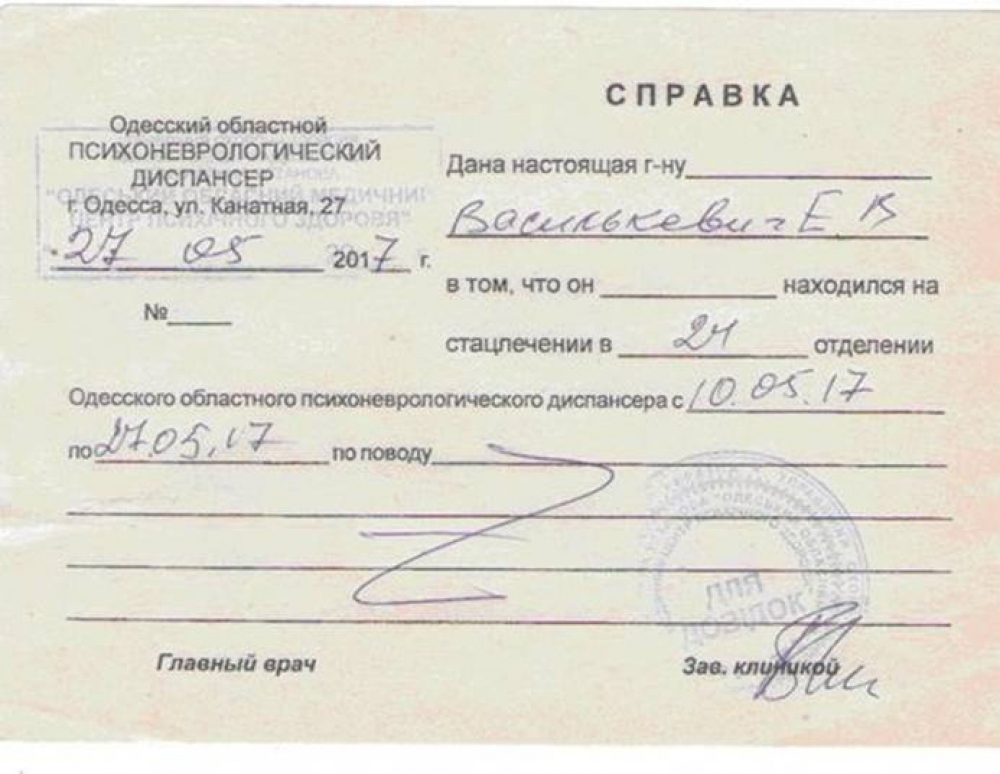 СПРАВКА
Одесский областной
ПСИХОНЕВРОЛОГИЧЕСКИЙ
ДИСПАНСЕР
г. Одесса, ул. Канатная, 27
"ОДЕСЬКИЙ ОБЛАСНИЙ МЕДИЧНИЙ
ЦЕНТР ПСИХІЧНОГО ЗДОРОВЯ"
27 05 2017 г.
№
Дана настоящая г-ну
Василькевич Е В
в том, что он находился на
стацлечении в 24 отделении
Одесского областного психоневрологического диспансера с 10.05.17
по 27.05.17 по поводу
ДЛЯ
ДОВІДОК
Главный врач
Зав. клиникой